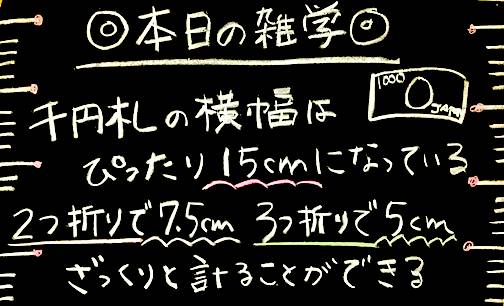 ◎本日の雑学◎
1000
JAPAN
千円札の横幅は
ぴったり15cmになっている
2つ折りで7.5cm 3つ折りで5cm
ざっくりと計ることができる